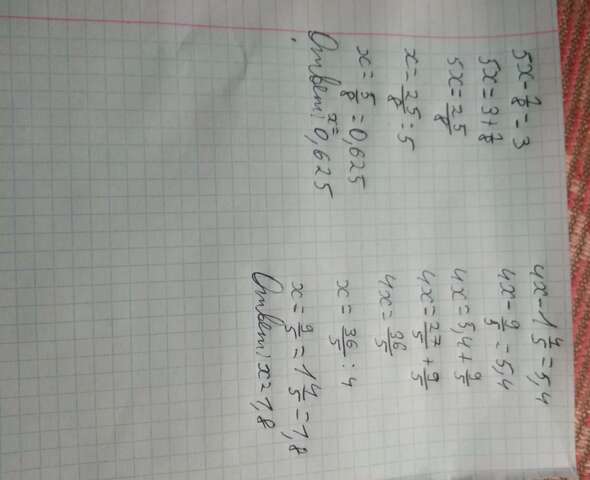 5x-1/8=3
5x=3+1/8
5x=25/8
x=25/8:5
x=5/8=0,625
Ответ: x=0,625
4x-1 4/5=5,4
4x-9/5=5,4
4x=5,4+9/5
4x=27/5+9/5
4x=36/5
x=36/5:4
x=9/5=1 4/5=1,8
Ответ: x=1,8